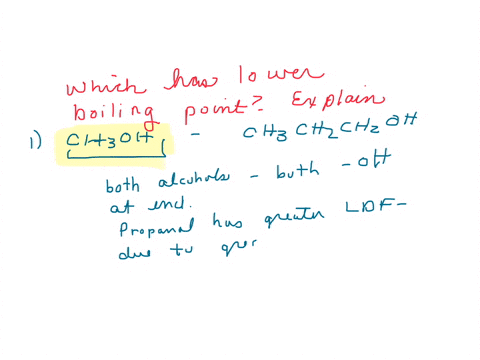 which has lower
boiling point? Explain
1) CH3OH - CH3CH2CH2OH
both alcohols - both -OH
at end.
Propanal has greater LDF-
due to grer